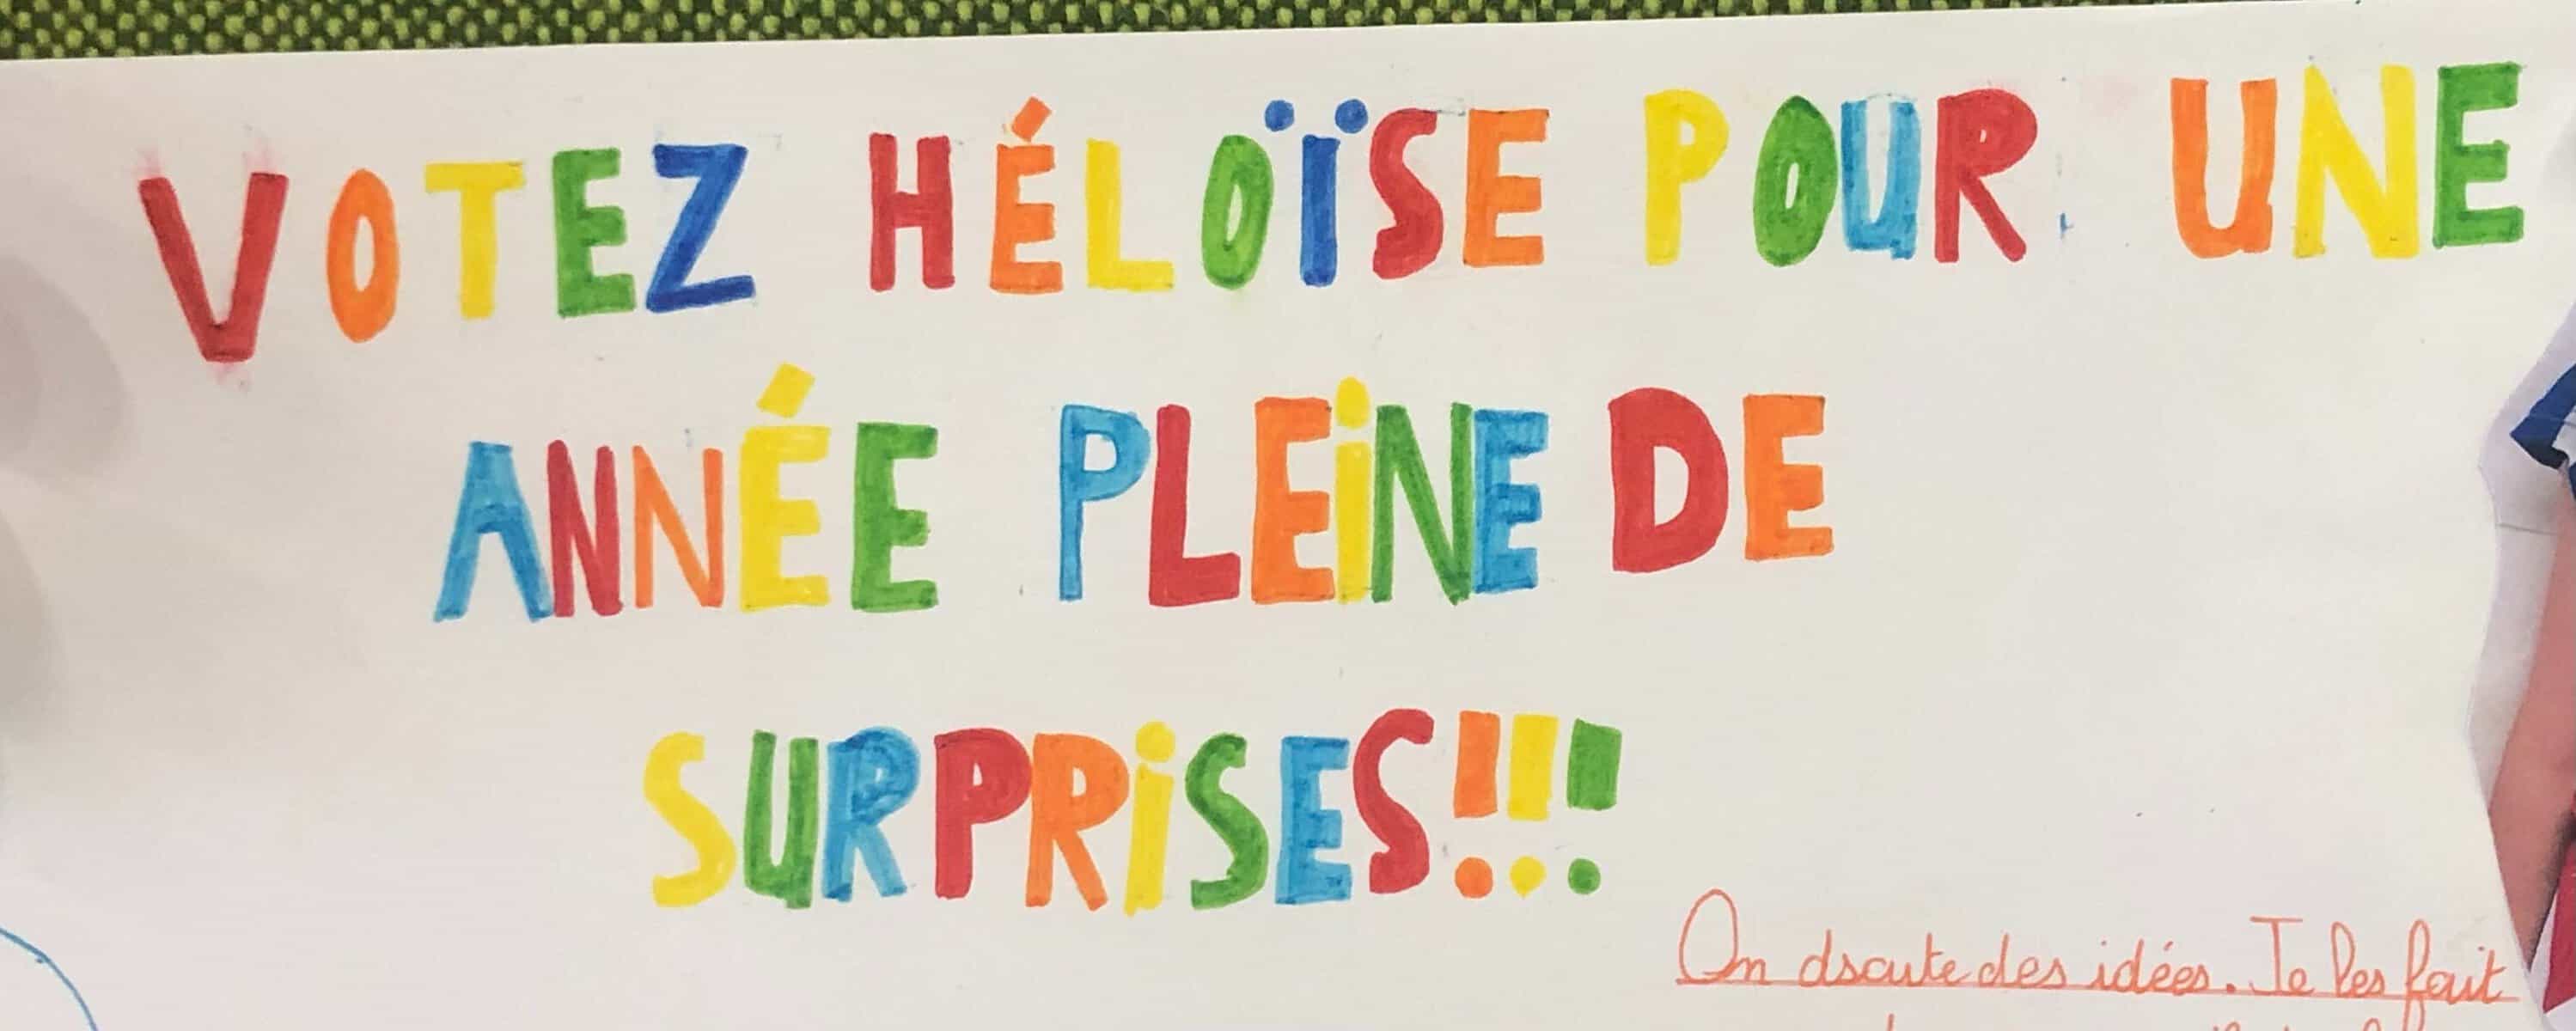 VOTEZ HÉLOÏSE POUR UNE
ANNÉE PLEiNE DE
SURPRiSES!!!
On dscute des idées. Je les fait